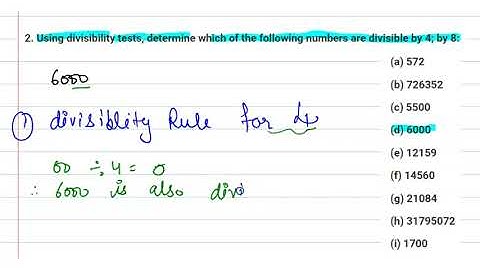 2. Using divisibility tests, determine which of the following numbers are divisible by 4; by 8:
(a) 572
(b) 726352
(c) 5500
(d) 6000
(e) 12159
(f) 14560
(g) 21084
(h) 31795072
(i) 1700
6000
① divisiblity Rule for 4
00 ÷ 4 = 0
∴ 6000 is also divi